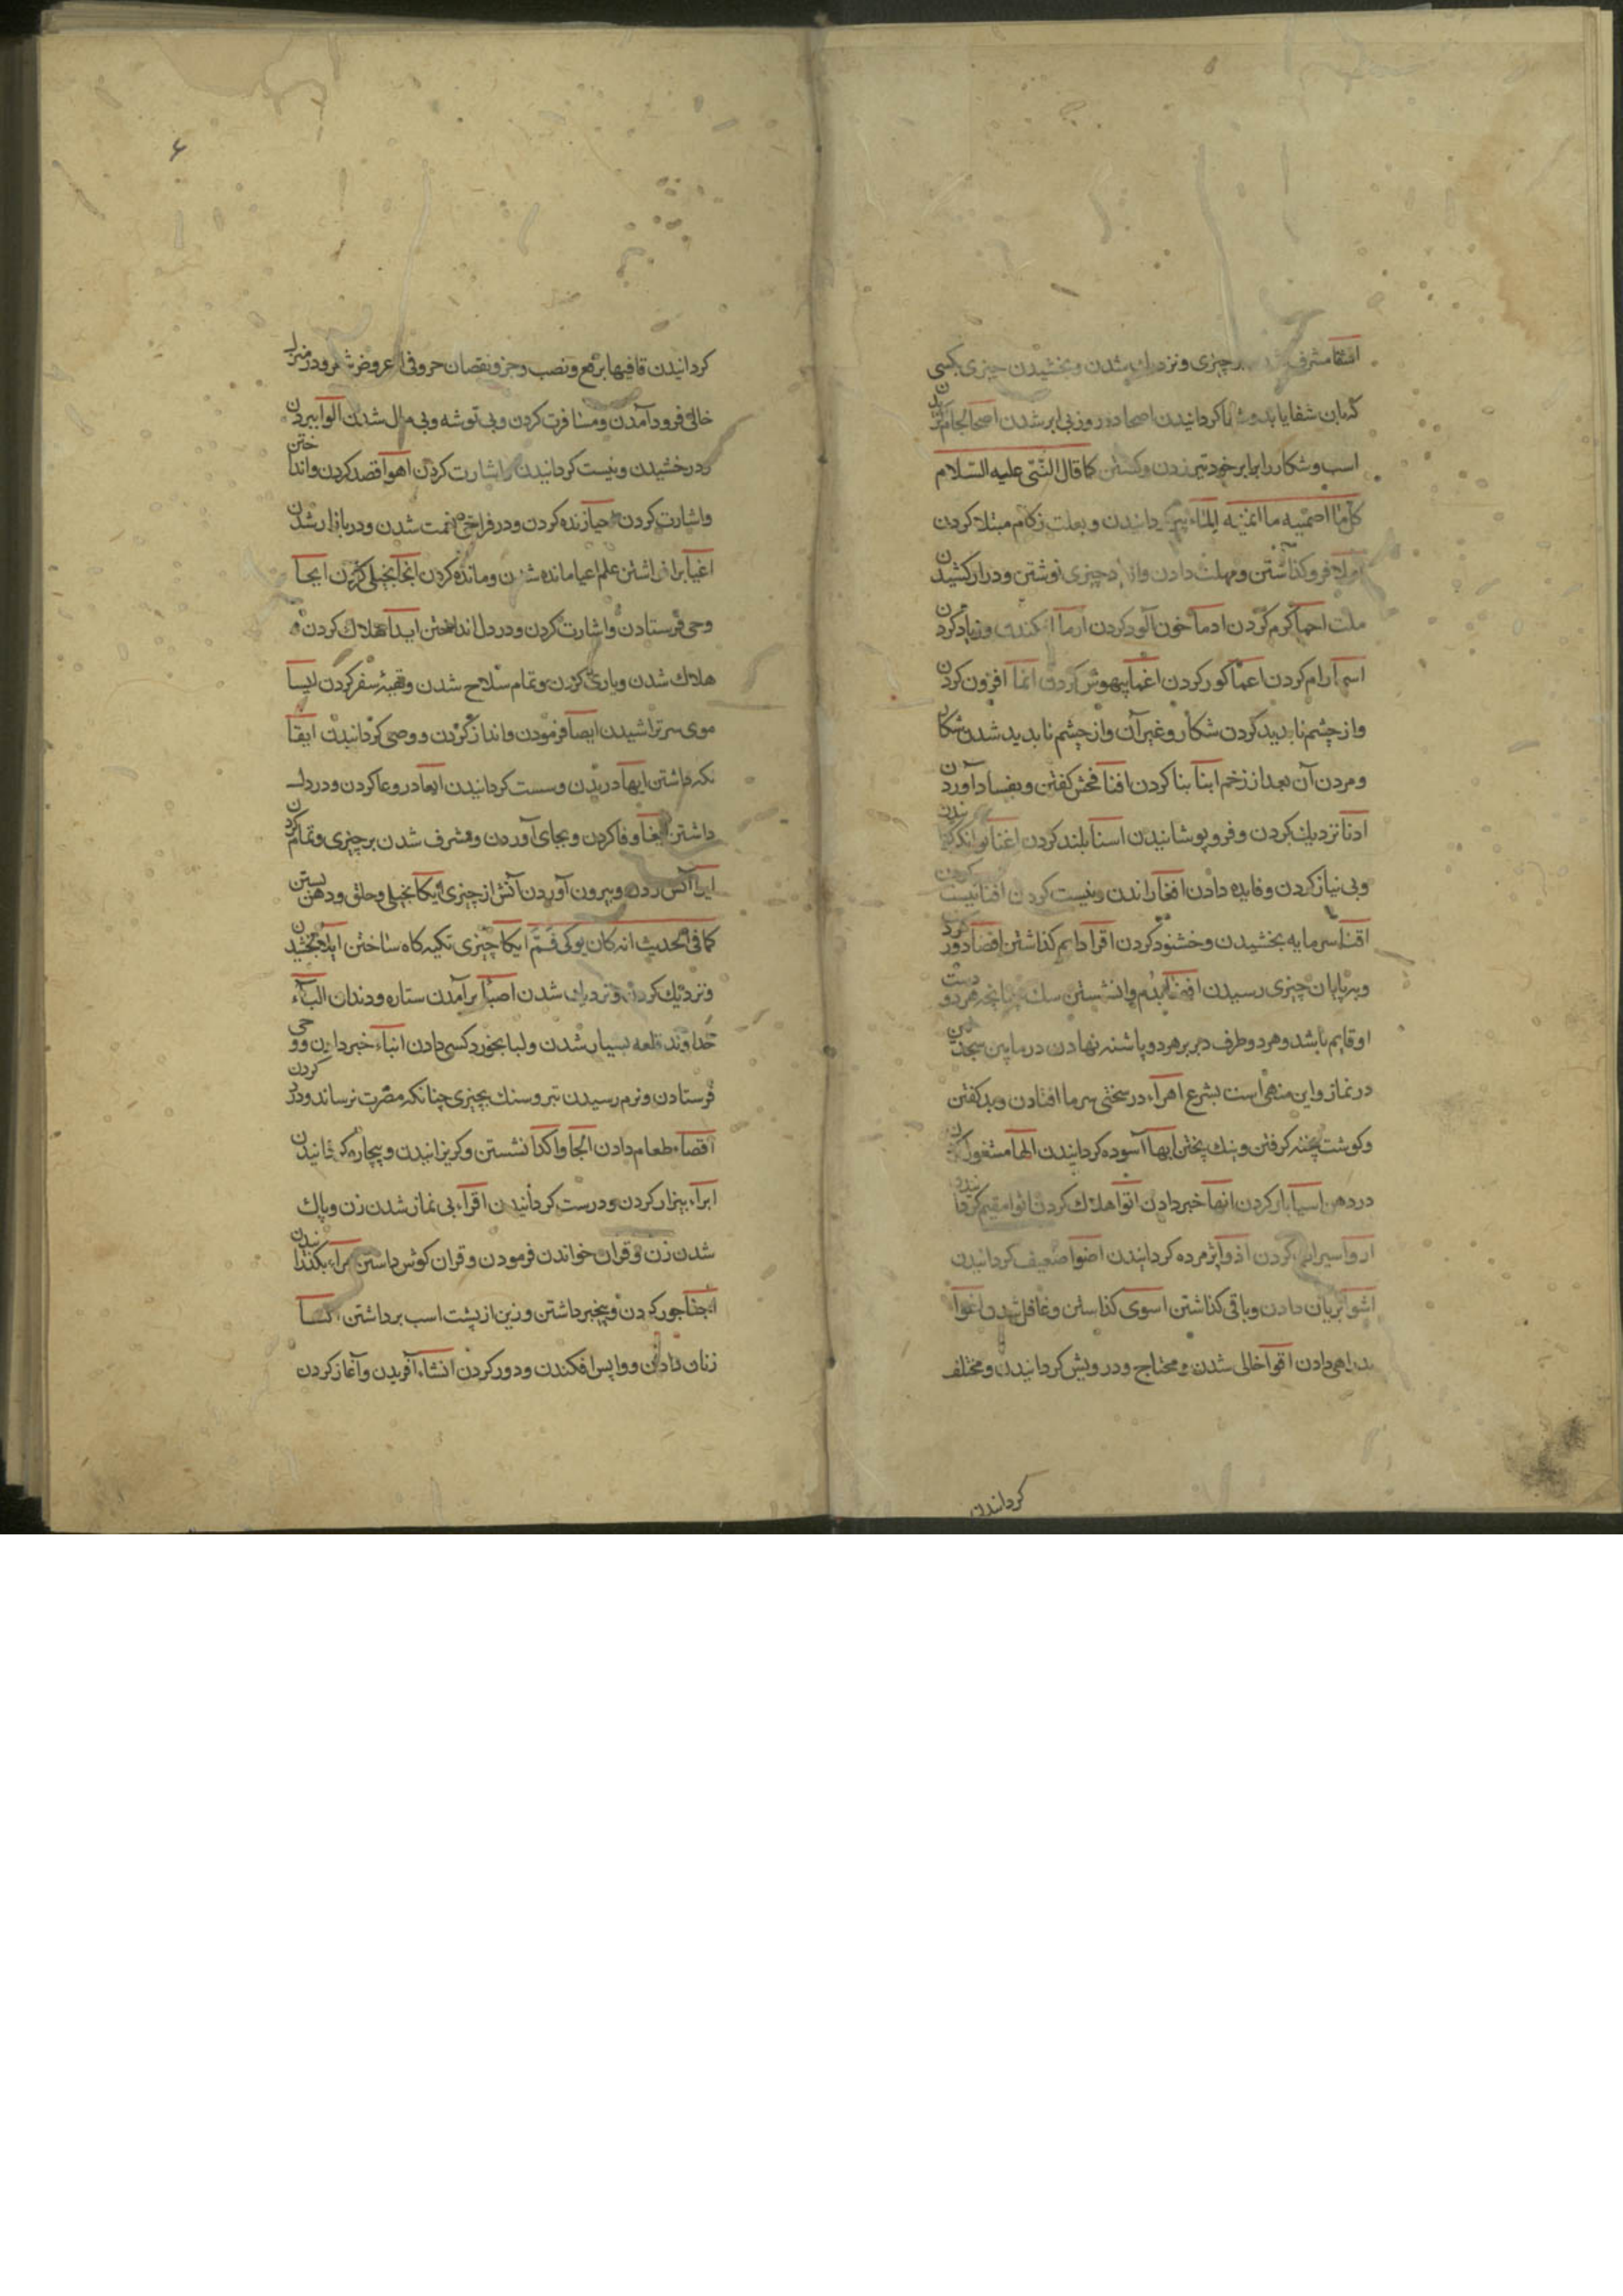 اشفا مشرف شدن بر چیزی و نزدیک شدن و بخشیدن چیزی بکسی
که بان شفا یابد کردانیدن اصحا در روز بی ابر شدن
اسب و شکار را برابر خود تیر زدن و کشتن کما قال النبی علیه السلام
کل ما اصمیته ما انمیته کردانیدن و بعلت زکام مبتلا کردن
املا فرو کذاشتن و مهلت دادن و از یاد چیزی نوشتن و دراز کشیدن
ملت احما کرم کردن ادما خون آلود کردن ارما افکندن و زیاد کردن
اسما رام کردن اعما کور کردن اغما بیهوش کردن انما افزون کردن
و از چشم نابدید کردن شکار و غیر آن و از چشم نابدید شدن شکار
و مردن آن بعد از زخم ابنا بنا کردن افنا فحش کفتن و بفساد آوردن
ادنا نزدیک کردن و فرو پوشانیدن اسنا بلند کردن اغنا توانکر
و بی نیاز کردن و فایده دادن راندن و نیست کردن افنا نیست کردن
اقنا سرمایه بخشیدن و خشنود کردن اقرا دایم کذاشتن اقصا دور کردن
و بپایان چیزی رسیدن بدم وا نشستن سک چنانچه هر دو دست
او قایم باشد و هر دو طرف دبر بر هر دو پاشنه نهادن در مابین سجدتین
در نماز و این منهی است بشرع اهراء در سختی سرما افتادن و بد کفتن
و کوشت پخته کرفتن و نیک پختن ابها آسوده کردانیدن الها مشغول کردن
در دهن اسیا بار کردن انها خبر دادن اتوا هلاک کردن اثوا مقیم
اروا سیراب کردن اذوا پژمرده کردانیدن اضوا ضعیف کردانیدن
اشوا بریان دادن و باقی کذاشتن اسوی کذاشتن و غافل شدن اغوا
بد راهی دادن اقوا خالی شدن و محتاج و درویش کردانیدن و مختلف
کردانیدن
۶
کردانیدن قافیها برفع و نصب و جر و نقصان حروفی از عروض شعر و در منزل
خالی فرود آمدن و مسافرت کردن و بی توشه و بی مال شدن الوا ببردن
و درخشیدن و نیست کردانیدن و اشارت کردن اهوا قصد کردن و انداختن
و اشارت کردن احیا زنده کردن و در فراخی نعمت شدن و در باران شدن
اغیا بر افراشتن علم اعیا مانده شدن و مانده کردن بخیلی کردن ایحا
وحی فرستادن و اشارت کردن و در دل انداختن ایدا هلاک کردن و
هلاک شدن و یاری کردن و تمام سلاح شدن و تهیه سفر کردن ایسا
موی سر تراشیدن ایصا فرمودن و انداز کردن و وصی کردانیدن ایقا
نکه داشتن ایها دریدن و سست کردانیدن ایعا در وعا کردن و در دل
داشتن ایفا وفا کردن و بجای آوردن و مشرف شدن بر چیزی و تمام کردن
ایرا آتش زدن و بیرون آوردن آتش از چیزی ایکا بخیلی و حلق و دهن بستن
کما فی الحدیث انه کان یوکی ایکا چیزی تکیه کاه ساختن ایلا بخشیدن
و نزدیک کردن و نزدیک شدن اصبا بر آمدن ستاره و دندان الباء
خداوند قلعه بسیار شدن و لبا بخورد کسی دادن انباء خبر دادن و وحی
فرستادن و نرم رسیدن تیر و سنک بچیزی چنانکه مضرت نرساند و دور کردن
طعام دادن الجا واکذا نشستن و کریزانیدن و بیچاره کردانیدن
ابراء بیزار کردن و درست کردانیدن اقراء بی نماز شدن زن و پاک
شدن زن و قران خواندن فرمودن و قران کوش داشتن
و پنجبر داشتن و زین از پشت اسب برداشتن
زنان دادن و واپس افکندن و دور کردن انشاء آفریدن و آغاز کردن